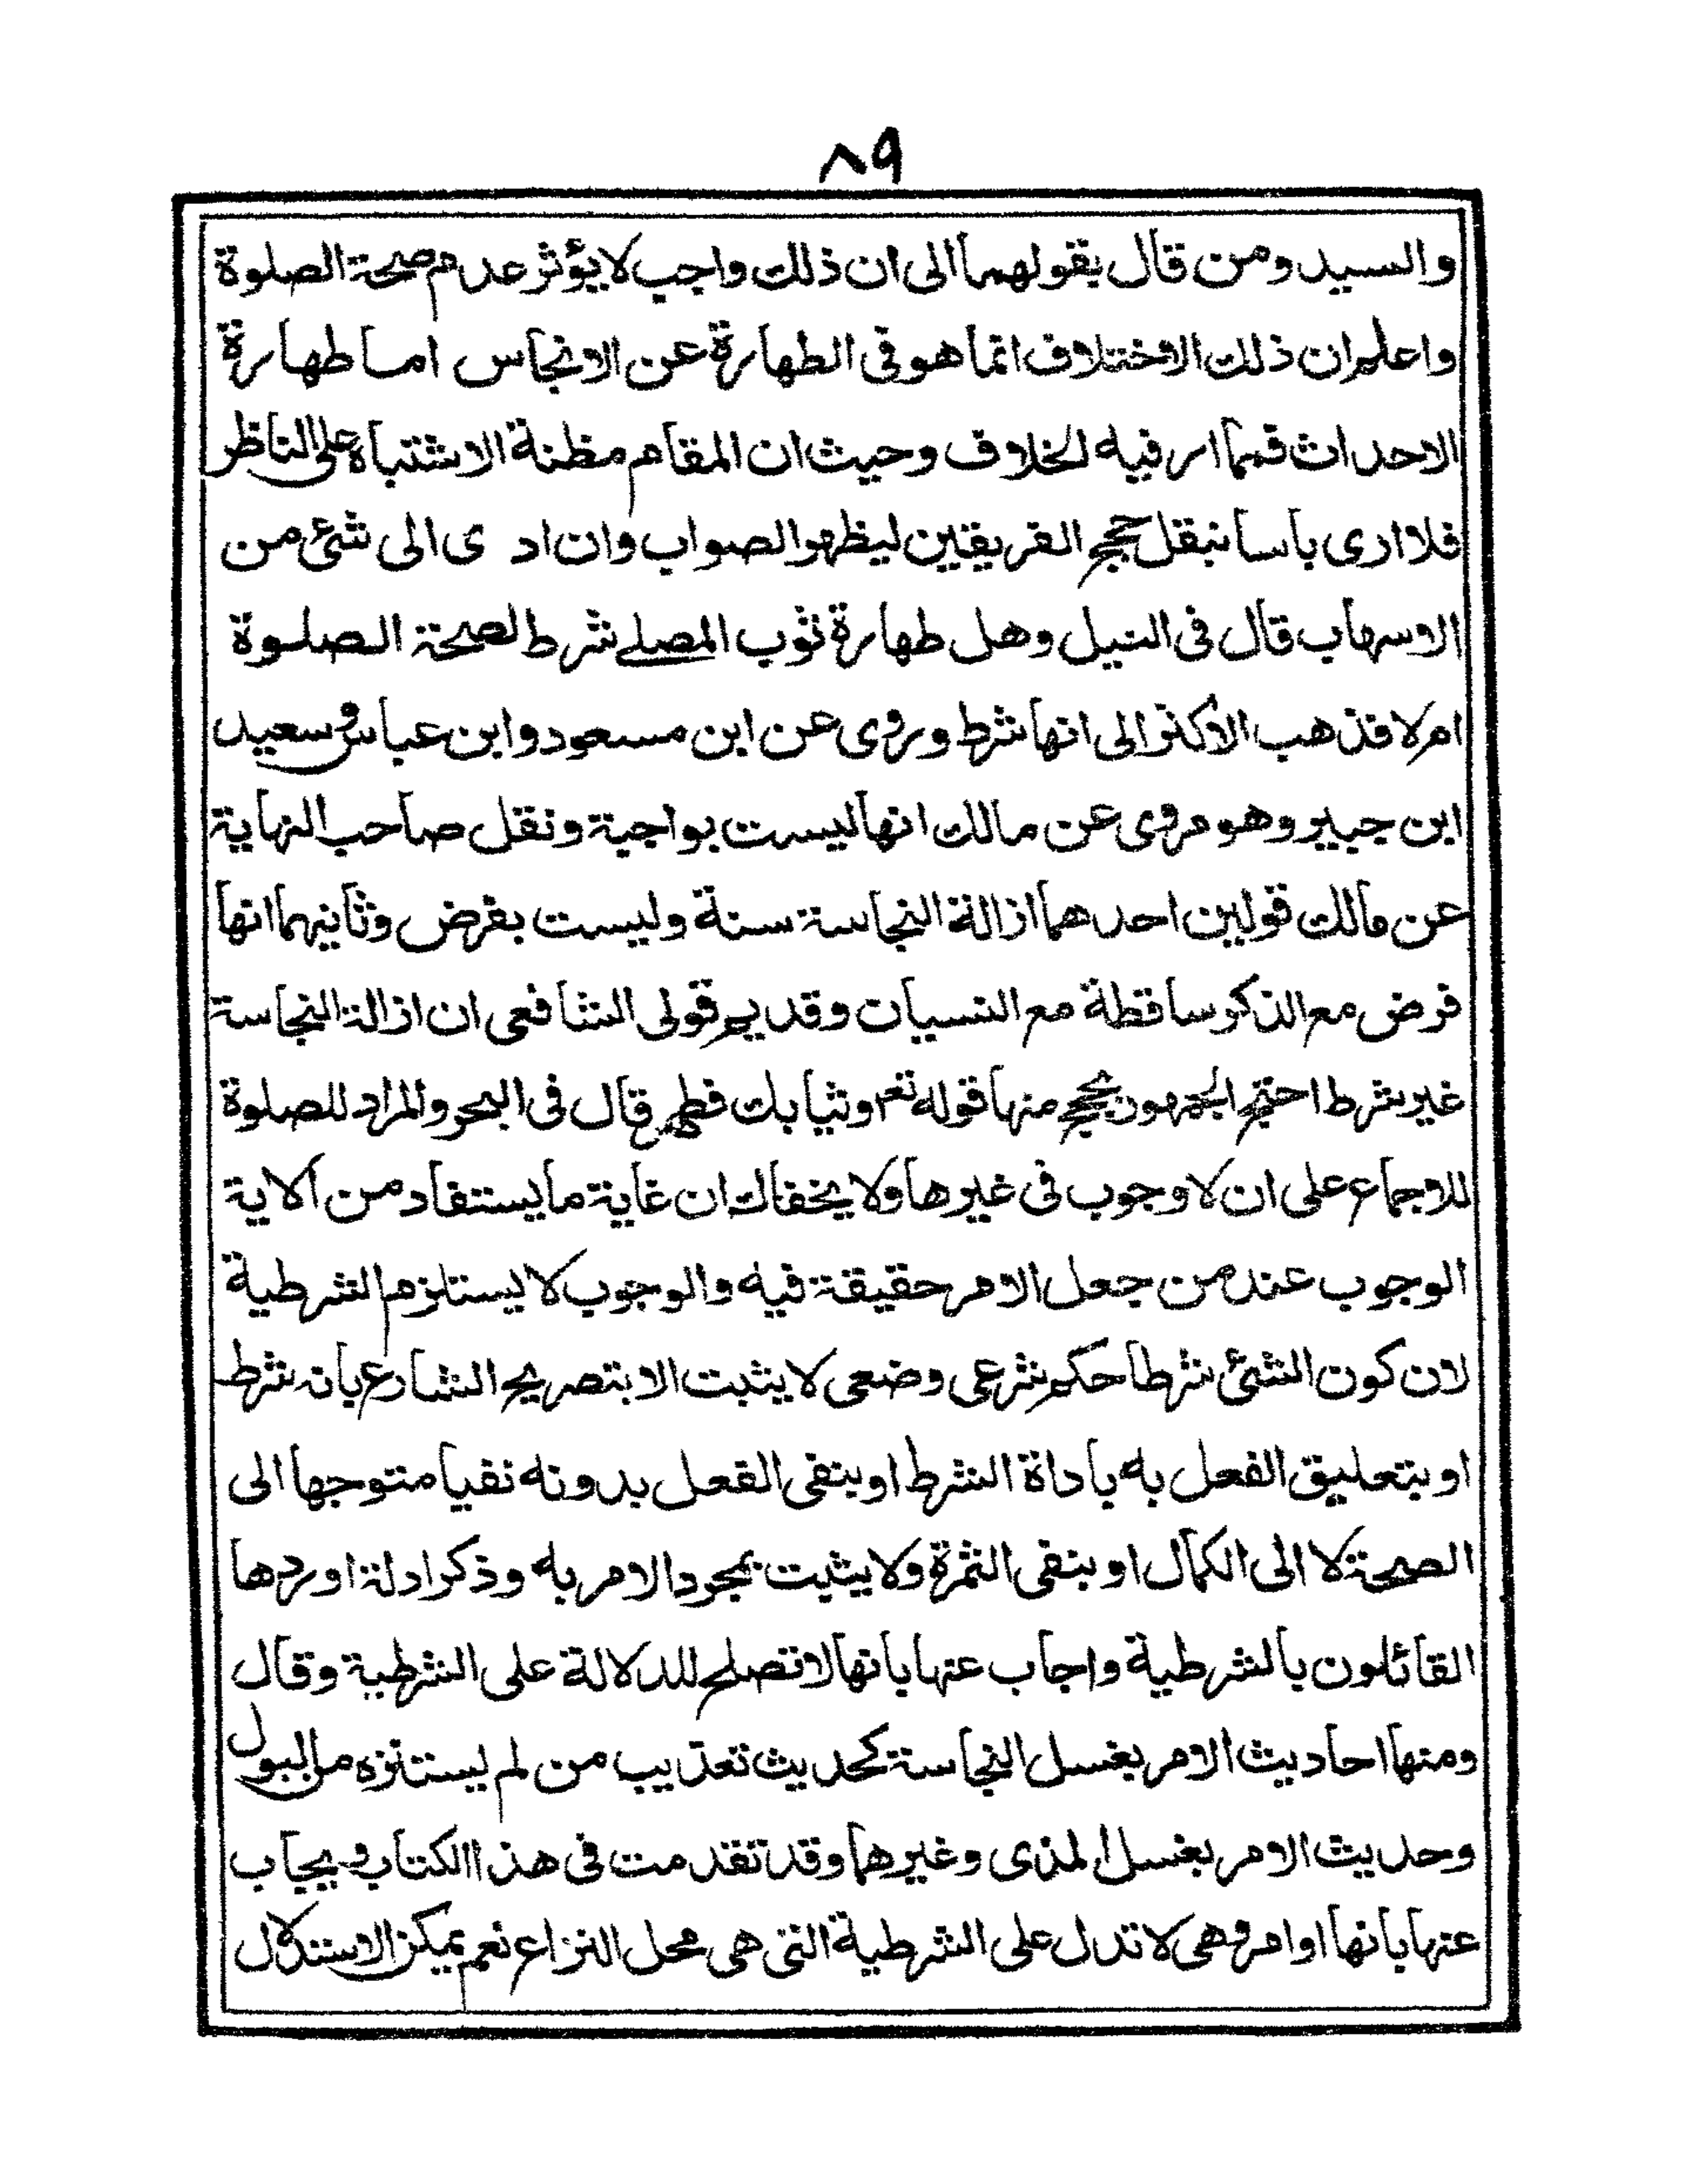 ٨٩
والسيد ومن قال بقولهما الى ان ذلك واجب لا يؤثر عدم صحة الصلوة
واعلم ان ذلك الاختلاف انما هو فى الطهارة عن الانجاس اما طهارة
الاحداث فما ار فيه الخلاف وحيث ان المقام مظنة الاشتباه على الناظر
فلا ارى بأسا بنقل حجج الفريقين ليظهر الصواب وان اد ى الى شئ من
الاسهاب قال فى النيل وهل طهارة ثوب المصلے شرط لصحة الصلوة
ام لا فذهب الاكثر الى انها شرط وروى عن ابن مسعود وابن عباس وسعيد
ابن جبير وهو مروى عن مالك انها ليست بواجبة ونقل صاحب النهاية
عن مالك قولين احدهما ازالة النجاسة سنة وليست بفرض وثانيهما انها
فرض مع الذكر ساقطة مع النسيان وقديم قولى الشافعى ان ازالة النجاسة
غير شرط احتج الجمهور بحجج منها قوله تعم وثيابك فطهر قال فى البحر والمراد للصلوة
للاجماع على ان لا وجوب فى غيرها ولا يخفاك ان غاية ما يستفاد من الاية
الوجوب عند من جعل الامر حقيقة فيه والوجوب لا يستلزم الشرطية
لان كون الشئ شرطا حكم شرعى وضعى لا يثبت الا بتصريح الشارع بانه شرط
او بتعليق الفعل به باداة الشرط او بنفى الفعل بدونه نفيا متوجها الى
الصحة لا الى الكمال او بنفى الثمرة ولا يثبت بمجرد الامر به وذكر ادلة اوردها
القائلون بالشرطية واجاب عنها بانها لا تصلح للدلالة على الشرطية وقال
ومنها احاديث الامر بغسل النجاسة كحديث تعذيب من لم يستنزه من البول
وحديث الامر بغسل المذى وغيرهما وقد تقدمت فى هذا الكتاب ويجاب
عنها بانها اوامر وهى لا تدل على الشرطية التى هى محل النزاع نعم يمكن الاستدلال